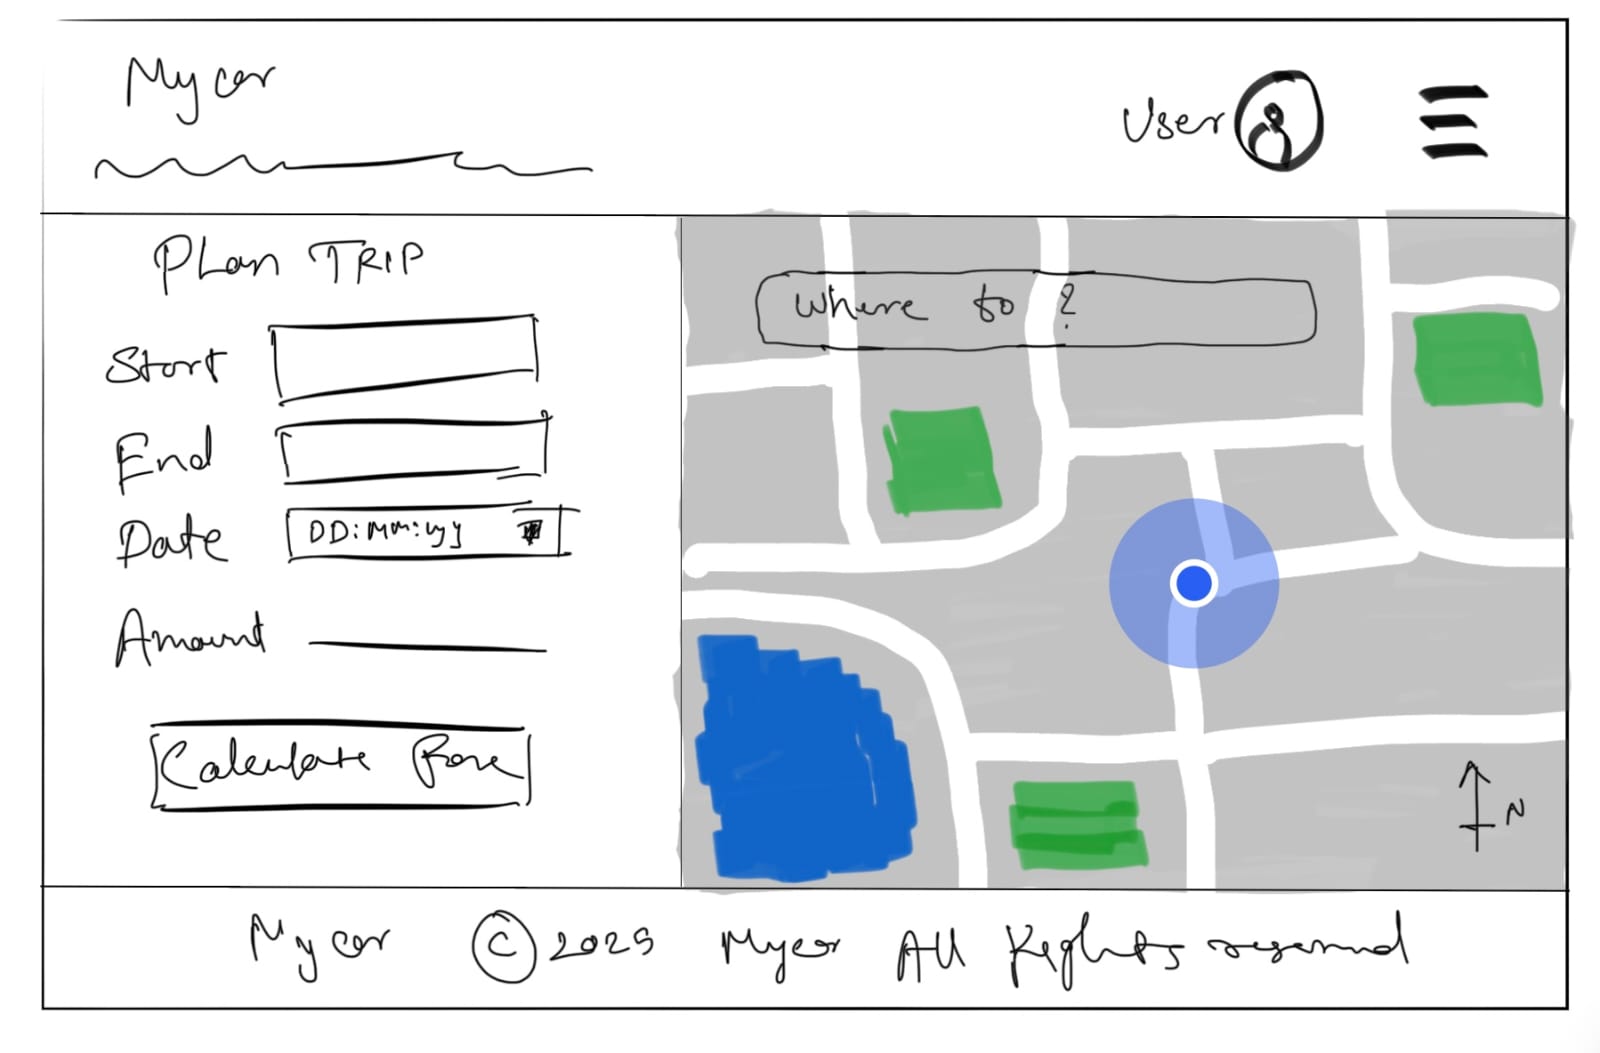 Mycar
User
Plan TRIP
Start
End
Date DD:MM:yy
Amount
Calculate Fare
Where to ?
N
Mycar © 2025 Mycar All Rights reserved